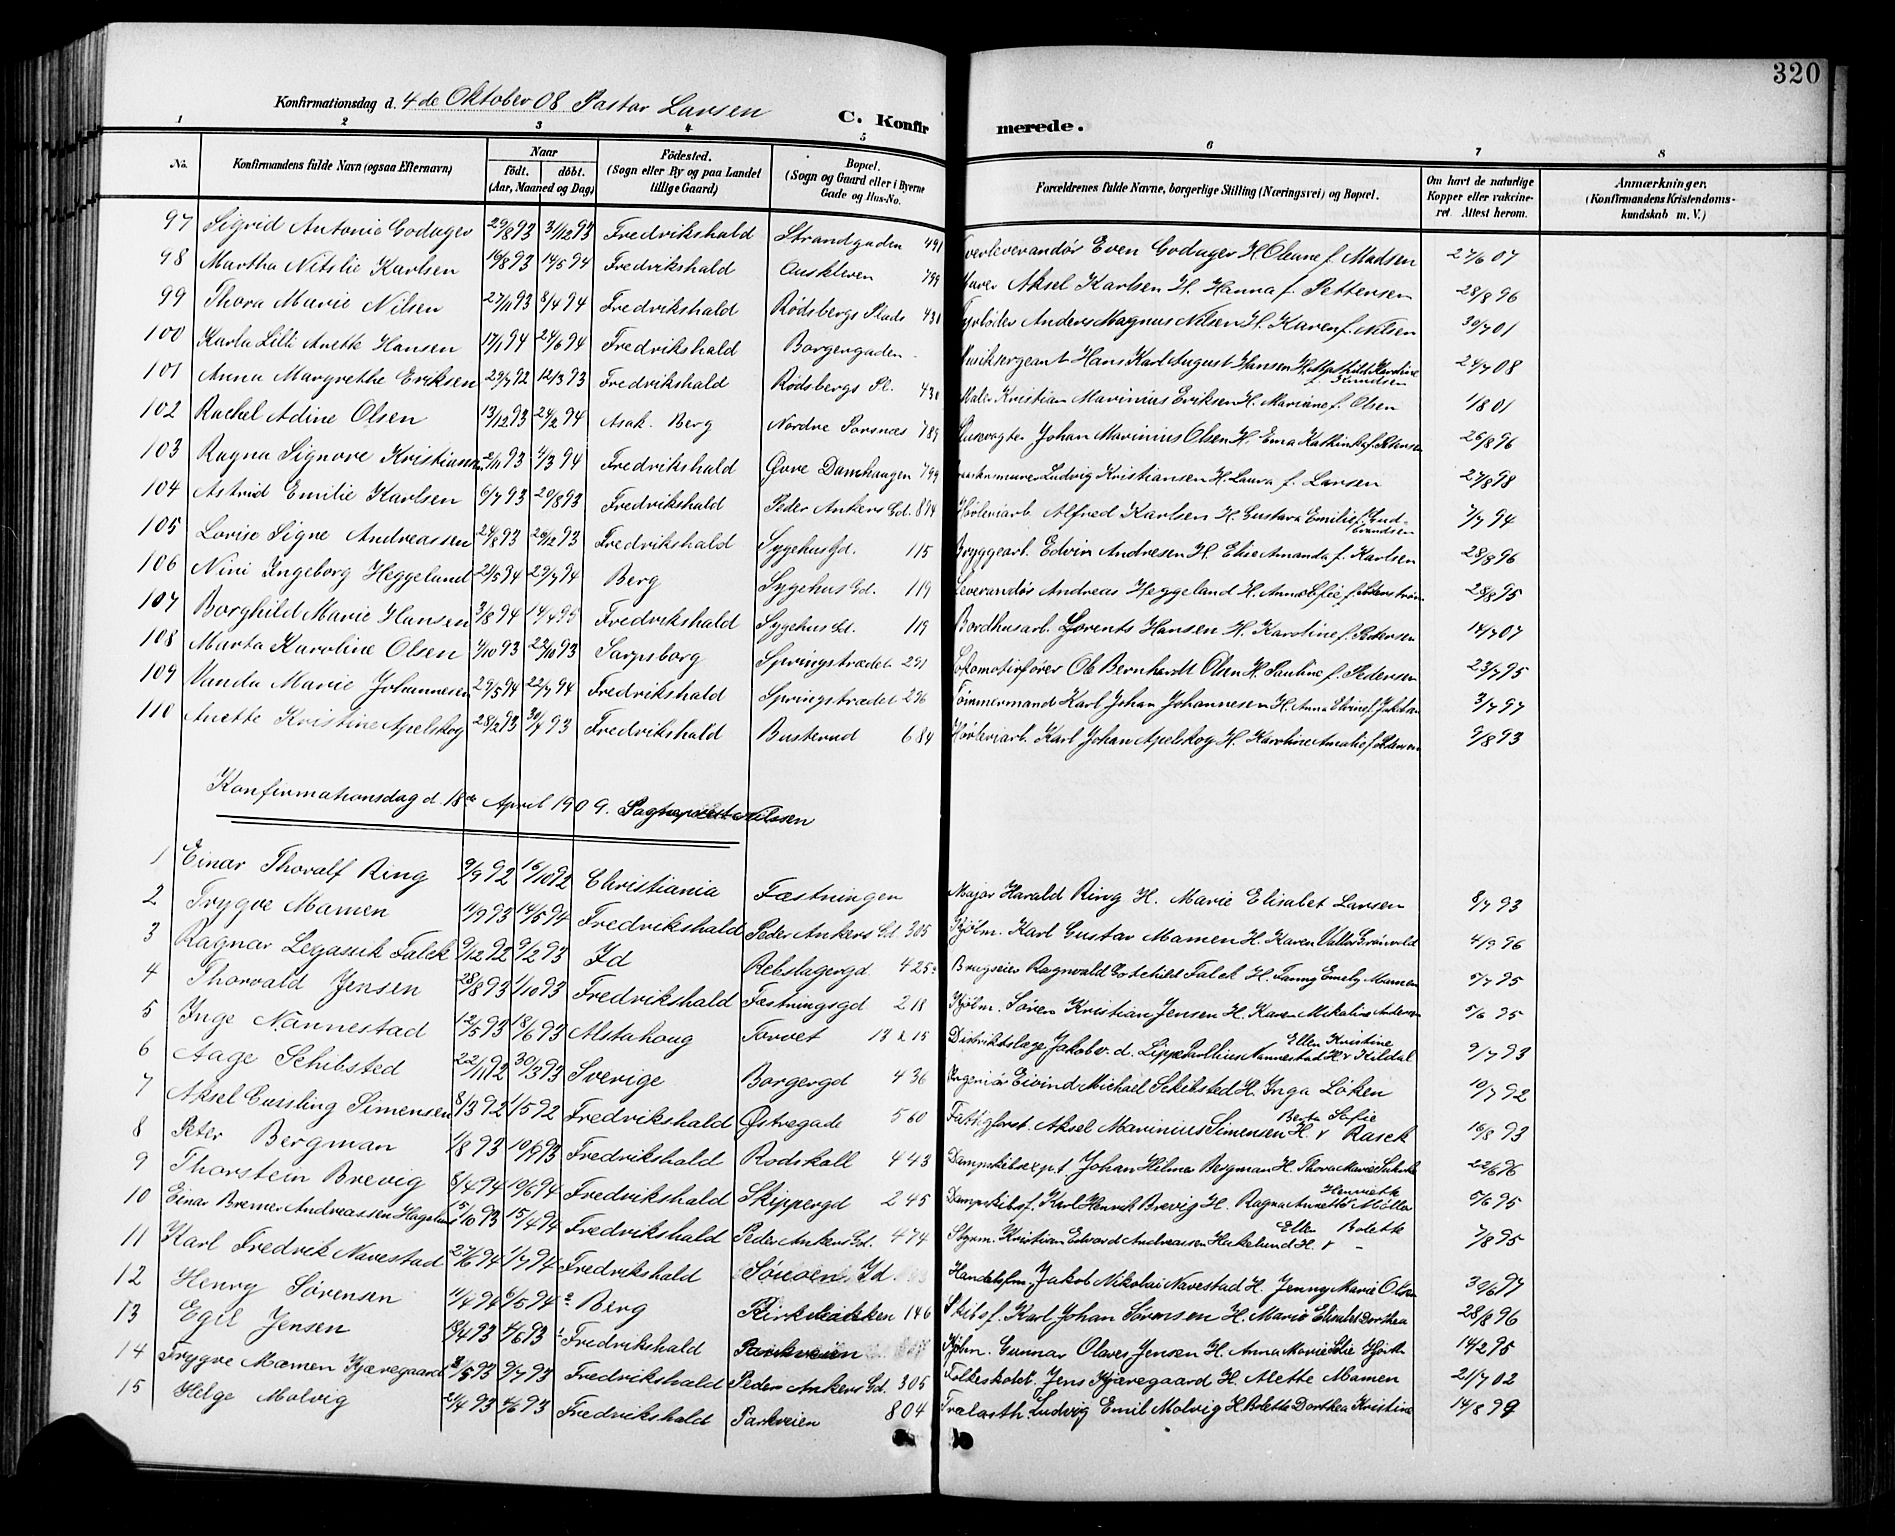 320
Konfirmationsdag d. 4 de Oktober 08 Pastor Larsen
C. Konfirmerede.
1 2 3 4 5 6 7 8
No. Konfirmandens fulde Navn (ogsaa Efternavn) Naar födt. döbt. (Aar, Maaned og Dag) Födested. (Sogn eller By og paa Landet tillige Gaard) Bopæl. (Sogn og Gaard eller i Byerne Gade og Hus-No. Forældrenes fulde Navne, borgerlige Stilling (Næringsvei) og Bopæl. Om havt de naturlige Kopper eller vakcineret. Attest herom. Anmærkninger. (Konfirmandens Kristendomskundskab m. V.)
97 Sigrid Antonie Godager 29/8 93 3/12 93 Fredrikshald Strandgaden 491 Even Godager H. Oleane f. Madsen 27/6 07
98 Martha Karlsen 19/8 93 14/5 94 Fredrikshald 799 Aksel Karlsen H. Hanna f. Pettersen 28/8 96
99 Thora Marie Nilsen 27/11 93 8/4 94 Fredrikshald Rødsbergs Plads 431 Fyrbøder Anders Magnus Nilsen H. Karen f. Nilsen 30/7 01
100 Karla Lilli Anette Hansen 17/1 94 24/6 94 Fredrikshald Borgergaden Musiksergeant Hans Karl August Hansen H. Mathilde Karoline f. Knudsen 24/7 08
101 Anna Margrethe Eriksen 29/7 92 12/3 93 Fredrikshald Rødsbergs Pl. 430 Maler Kristian Marinius Eriksen H. Mariane f. Olsen 1/8 01
102 Rachel Adine Olsen 13/12 93 24/2 94 Asak. Berg Nordre Porsnæs 789 Johan Marinius Olsen H. Ema Kathinka f. Petersen 26/8 96
103 Ragna Signore Kristiansen 2/11 93 4/3 94 Fredrikshald Øvre Damhaugen 799 Ludvig Kristiansen H. Laura f. Larsen 27/8 98
104 Astrid Emilie Karlsen 6/7 93 20/8 93 Fredrikshald Peder Ankers Gd. 874 Høvleriarb. Alfred Karlsen H. Gustava Emilie f. Gudbrandsen 7/7 94
105 Lovise Signe Andreassen 24/8 93 26/12 93 Fredrikshald Sygehus Gd. 115 Bryggearb. Edvin Andresen H. Elie Amanda f. Karlsen 28/8 96
106 Nini Ingeborg Heggelund 21/5 94 29/7 94 Berg Sygehus Gd. 119 Leverandør Andreas Heggeland H. Anna Efie 28/8 95
107 Borghild Marie Hansen 3/8 94 14/4 95 Fredrikshald Sygehus Gd. 119 Bordhusarb. Lorents Hansen H. Karoline f. Petersen 14/7 07
108 Marta Karoline Olsen 1/10 93 22/10 93 Sarpsborg Springstrædet 291 Lokomotivfører Ole Bernhardt Olsen H. Pauline f. Pedersen 23/7 95
109 Vanda Marie Johannesen 29/5 94 22/7 94 Fredrikshald Springstrædet 296 Tømmermand Karl Johan Johannesen H. Anna Elvine f. Jakobsen 3/7 97
110 Anette Kristine Apelskog 28/2 93 30/4 93 Fredrikshald Busterud 684 Høvleriarb. Karl Johan Apelskog H. Karoline Amalie f. Petersen 9/8 93
Konfirmationsdag d. 18de April 1909. Sogneprest Nilssen
1 Einar Thoralf Ring 9/9 92 16/10 92 Christiania Fæstningen Major Harald Ring H. Marie Elisabet Larsen 8/7 93
2 Trygve Mamen 11/9 93 14/5 94 Fredrikshald Peder Ankers Gd. 305 Kjøbm. Karl Gustav Mamen H. Karen Valler Grønvold 4/9 96
3 Ragnar Falck 9/12 92 9/2 93 Id Rebslagergd. 425 Brugseier Ragnvald Falck H. Fanny Emely Mamen 5/7 95
4 Thorvald Jensen 28/8 93 1/10 93 Fredrikshald Fæstningsgd. 218 Kjøbm. Søren Kristian Jensen H. Karen Mikaline Andersen 5/6 95
5 Inge Nannestad 12/5 93 18/6 93 Alstahoug Torvet 13 & 15 Distriktslæge Jakob v. d. Lippe Parelius Nannestad H. Ellen Kristine Kildal 9/7 93
6 Aage Schibsted 22/11 92 30/3 93 Sverige Borgergd 436 Ingeniør Eivind Michael Schibsted H. Inga Løken 10/7 92
7 Aksel Cussling Simensen 8/3 92 1/5 92 Fredrikshald Østregade 560 Fattigforst. Aksel Marinius Simensen H. Berta Sofie Rasck 16/8 93
8 Peter Bergman 1/8 93 10/9 93 Fredrikshald Rodskall 443 Dampskibsexpt Johan Hilmer Bergman H. Thora Marie 22/6 96
9 Thorstein Brevig 8/4 94 10/6 94 Fredrikshald Skippergd 245 Dampskibsf. Karl Henrik Brevig H. Ragna Annette Henriette Møller 5/6 95
10 Einar Bremer Andreassen Hagelund 15/10 93 15/4 94 Fredrikshald Peder Ankers Gd. 474 Styrm. Kristian Edvard Andreassen Hakelund H. Ellen Bolette 7/8 95
11 Karl Fredrik Navestad 27/6 94 1/7 94 Fredrikshald Id Handelsfm. Jakob Nikolai Navestad H. Jenny Marie Olsen 30/6 97
12 Henry Sørensen 11/4 94 6/5 94 Berg Kirkebakken 146 Skibsf. Karl Johan Sørensen H. Marie Elisabet Dorthea 28/8 96
13 Egil Jensen 19/4 93 4/6 93 Fredrikshald Parkveien Kjøbm. Gunnar Olaves Jensen H. Anna Marie Elie Hjorth 14/2 95
14 Trygve Mamen Kjæregaard 3/5 93 9/7 93 Fredrikshald Peder Ankers Gd. 305 Folkeskolel. Jens Kjæregaard H. Alette Mamen 21/7 02
15 Helge Molvig 21/4 93 4/6 93 Fredrikshald Parkveien 804 Trælasth. Ludvig Emil Molvig H. Bolette Dorthea Kristine 14/8 99